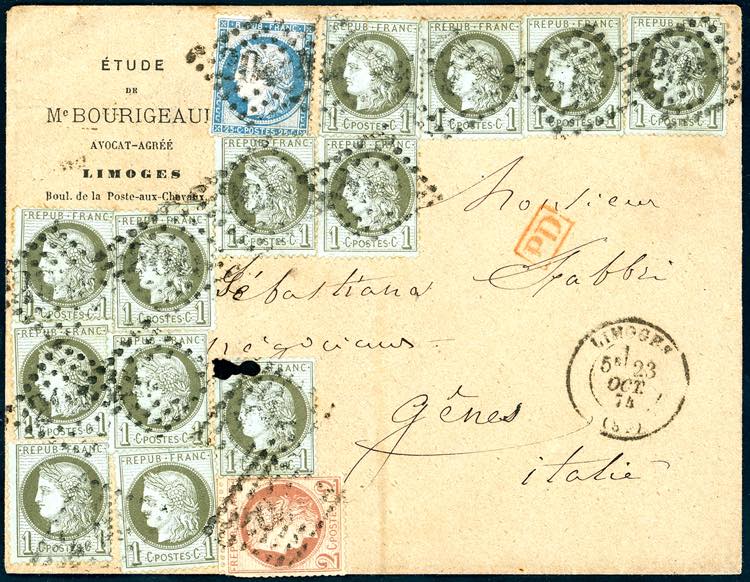 ÉTUDE
DE
Me BOURIGEAU
AVOCAT-AGRÉÉ
LIMOGES
Boul. de la Poste-aux-Chevaux
25·C·POSTES·25·C
REPUB·FRANC
1 C·POSTES·C 1
REPUB·FRANC
1 C·POSTES·C 1
REPUB·FRANC
1 C·POSTES·C 1
REPUB·FRANC
1 C·POSTES·C 1
1 C·POSTES·C 1
1 C·POSTES·C 1
Monsieur
PD
Sébastiano Fabbri
négociant
Gênes
Italie
LIMOGES
5E 23
OCT.
74
REPUB·FRANC
1 C·POSTES·C 1
REPUB·FRANC
1 C·POSTES·C 1
REPUB·FRANC
1 C·POSTES·C 1
REPUB·FRANC
1 C·POSTES·C 1
1 C·POSTES·C 1
REPUB·FRANC
1 C·POSTES·C 1
REPUB·FRANC
1 C·POSTES·C 1
REPUB·FRANC
2 C·POSTES 2